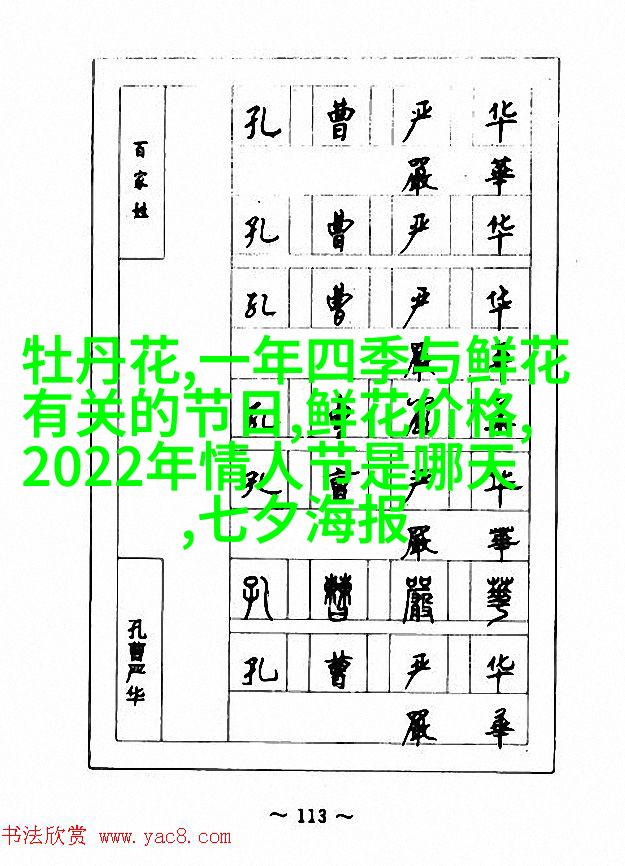 百家姓
孔 曹 严 华
嚴 華
孔 曹 严 华
孔 曹 严 华
牡丹花,一年四季与鲜花
有关的节日,鲜花价格,
2022年情人节是哪天
,七夕海报
孔 严 华
嚴 華
孔 曹 嚴 華
孔曹严华
孔 曹 严 华
嚴 華
~ 113 ~
书法欣赏 www.yac8.com